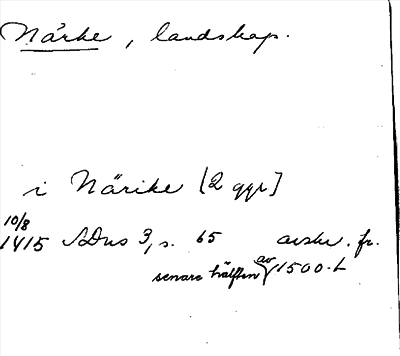 Närke, landskap.
i Närike [2 ggr]
10/8
1415 SDns 3, s. 65 avskr. fr.
senare hälften av 1500-t